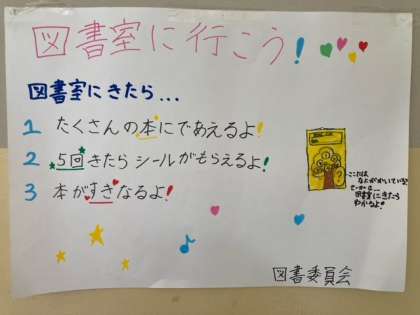 図書室に行こう!
図書室にきたら...
1 たくさんの本にであえるよ!
2 5回きたらシールがもらえるよ!
3 本がすきなるよ!
ここには
図書室にきたら
わかるよ!
図書委員会